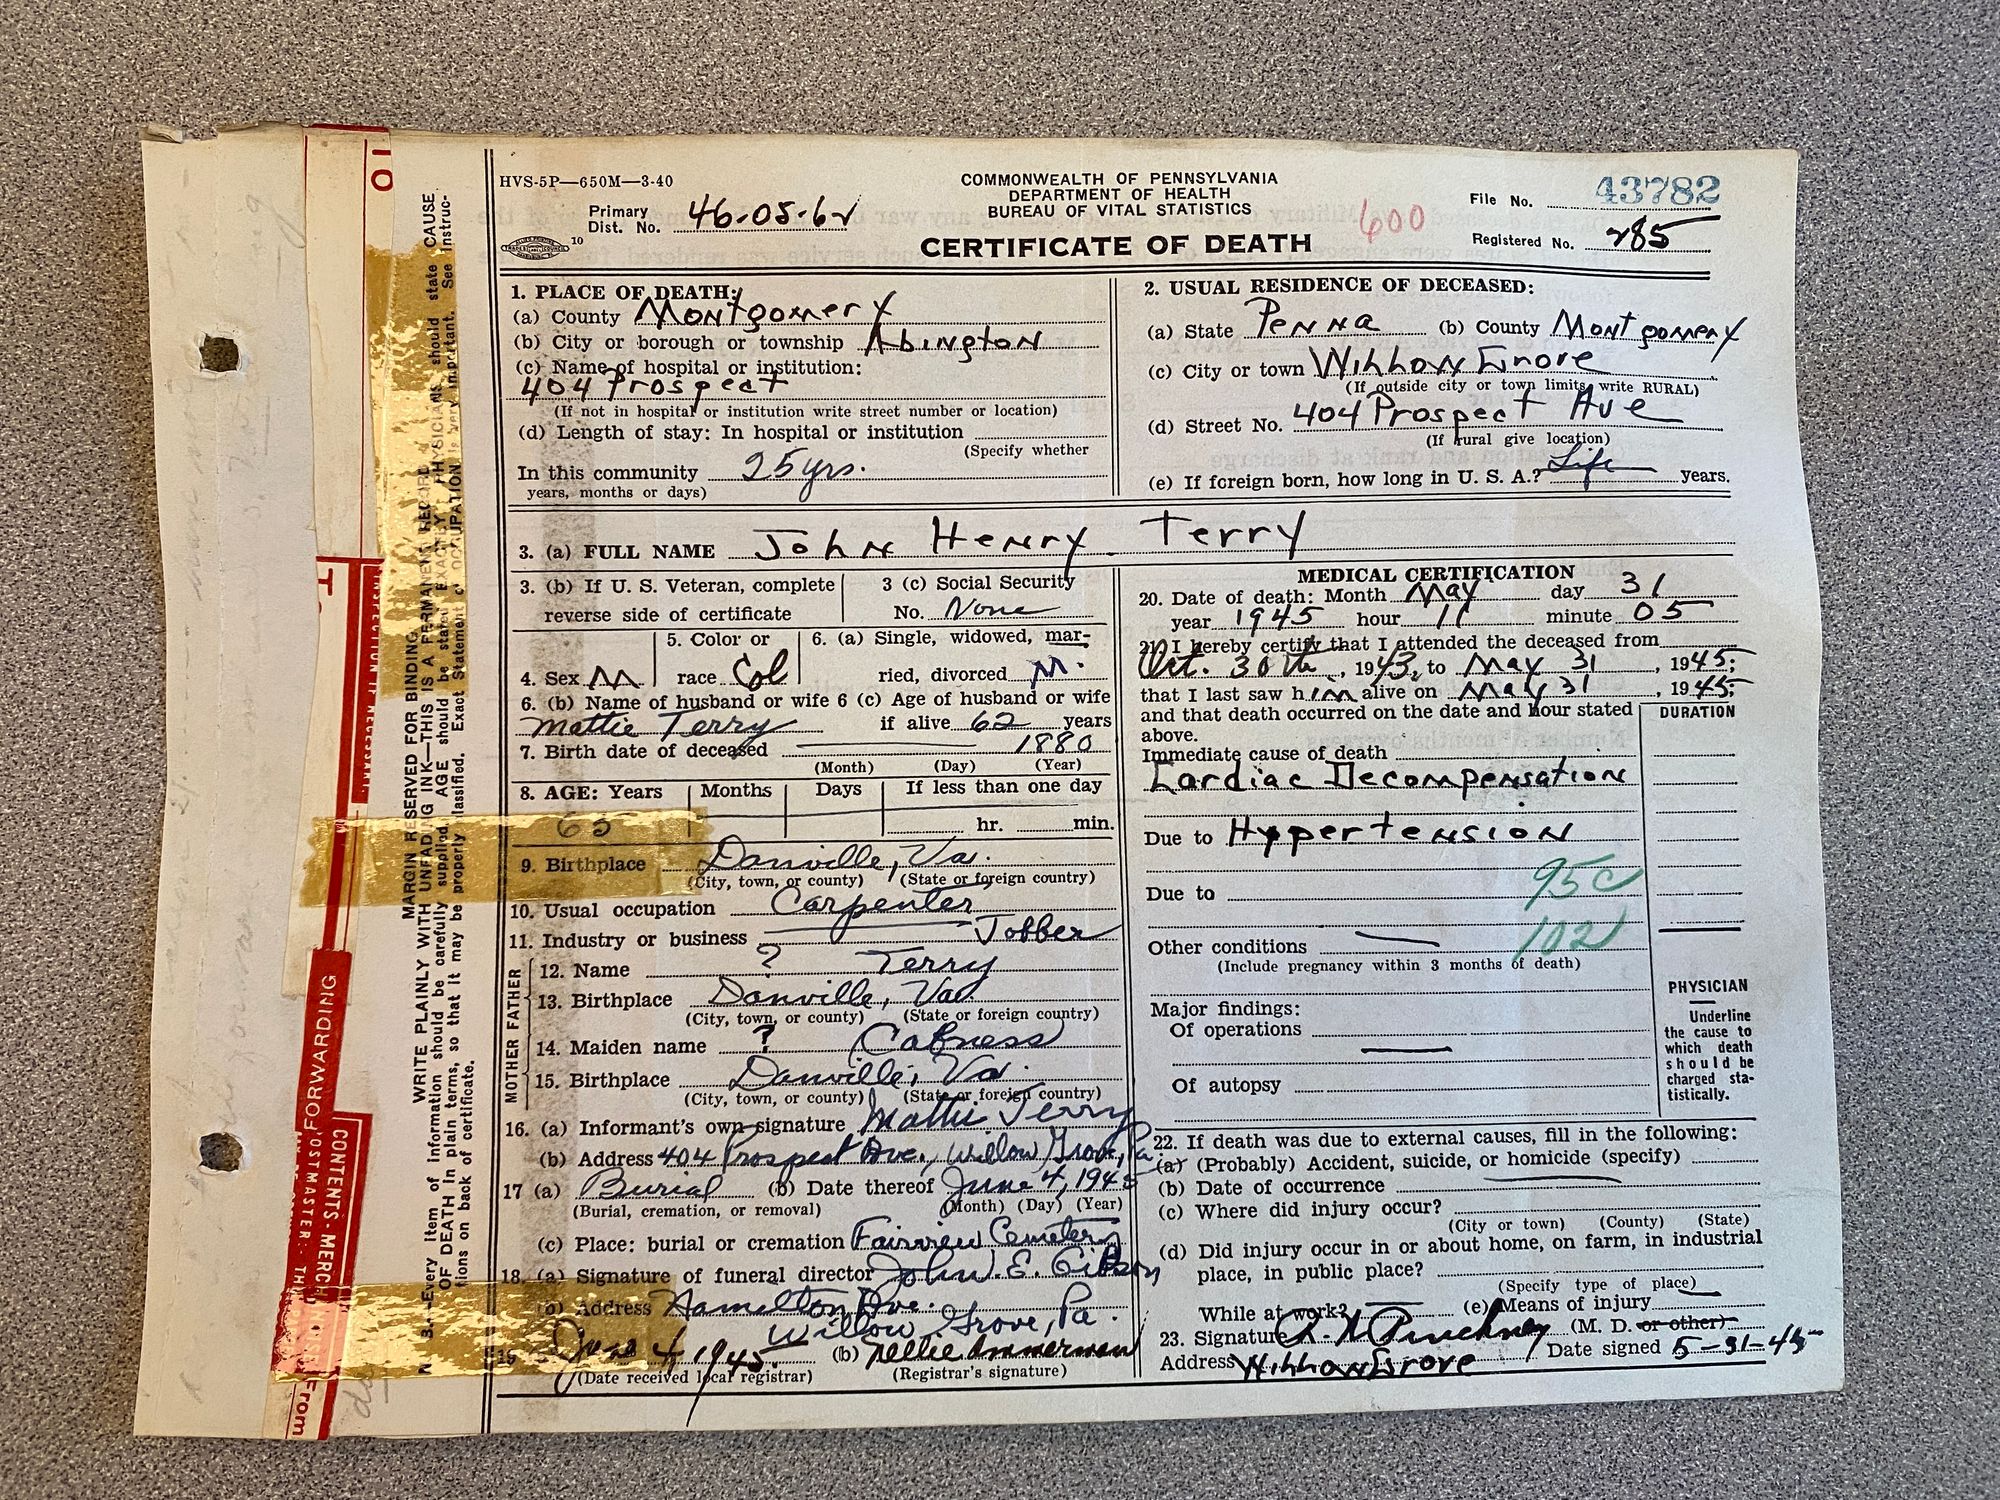 HVS-5P—650M—3-40
COMMONWEALTH OF PENNSYLVANIA
DEPARTMENT OF HEALTH
BUREAU OF VITAL STATISTICS
CERTIFICATE OF DEATH
Primary
Dist. No. 46-05-62
10
600
File No. 43782
Registered No. 285
1. PLACE OF DEATH:
(a) County Montgomery
(b) City or borough or township Abington
(c) Name of hospital or institution:
404 Prospect
(If not in hospital or institution write street number or location)
(d) Length of stay: In hospital or institution
(Specify whether
In this community 25 yrs.
years, months or days)
2. USUAL RESIDENCE OF DECEASED:
(a) State Penna (b) County Montgomery
(c) City or town Willow Grove
(If outside city or town limits, write RURAL)
(d) Street No. 404 Prospect Ave
(If rural give location)
(e) If foreign born, how long in U. S. A.? Life years.
3. (a) FULL NAME John Henry Terry
3. (b) If U. S. Veteran, complete
reverse side of certificate
3 (c) Social Security
No. None
4. Sex M
5. Color or
race Col
6. (a) Single, widowed, mar-
ried, divorced M.
6. (b) Name of husband or wife
Mattie Terry
6 (c) Age of husband or wife
if alive 62 years
7. Birth date of deceased 1880
(Month) (Day) (Year)
8. AGE: Years Months Days If less than one day
65 hr. min.
9. Birthplace Danville, Va.
(City, town, or county) (State or foreign country)
10. Usual occupation Carpenter
11. Industry or business Jobber
FATHER
12. Name ? Terry
13. Birthplace Danville, Va.
(City, town, or county) (State or foreign country)
MOTHER
14. Maiden name ? Cabness
15. Birthplace Danville, Va.
(City, town, or county) (State or foreign country)
16. (a) Informant's own signature Mattie Terry
(b) Address 404 Prospect Ave., Willow Grove, Pa.
17 (a) Burial (b) Date thereof June 4, 1945
(Burial, cremation, or removal) (Month) (Day) (Year)
(c) Place: burial or cremation Fairview Cemetery
18. (a) Signature of funeral director John E. Gibson
(b) Address Hamilton Ave.
Willow Grove, Pa.
19 June 4, 1945. (b) Nellie Ammerman
(Date received local registrar) (Registrar's signature)
MEDICAL CERTIFICATION
20. Date of death: Month May day 31
year 1945 hour 11 minute 05
21. I hereby certify that I attended the deceased from
Oct. 30th, 1943, to May 31, 1945;
that I last saw him alive on May 31, 1945;
and that death occurred on the date and hour stated
above.
DURATION
Immediate cause of death
Cardiac Decompensation
Due to Hypertension
95c
Due to
102
Other conditions
(Include pregnancy within 3 months of death)
Major findings:
Of operations
Of autopsy
PHYSICIAN
Underline
the cause to
which death
should be
charged sta-
tistically.
22. If death was due to external causes, fill in the following:
(a) (Probably) Accident, suicide, or homicide (specify)
(b) Date of occurrence
(c) Where did injury occur?
(City or town) (County) (State)
(d) Did injury occur in or about home, on farm, in industrial
place, in public place?
(Specify type of place)
While at work? (e) Means of injury
23. Signature R. N. Pinckney (M. D. or other)
Address Willow Grove Date signed 5-31-45
MARGIN RESERVED FOR BINDING
WRITE PLAINLY WITH UNFADING INK—THIS IS A PERMANENT RECORD
N. B.—Every item of information should be carefully supplied. AGE should be stated EXACTLY. PHYSICIANS should state CAUSE
OF DEATH in plain terms, so that it may be properly classified. Exact Statement of OCCUPATION is very important. See instruc-
tions on back of certificate.
TO
INSPECTION IF NECESSARY
FORWARDING
CONTENTS - MERCH
POSTMASTER: TH
From